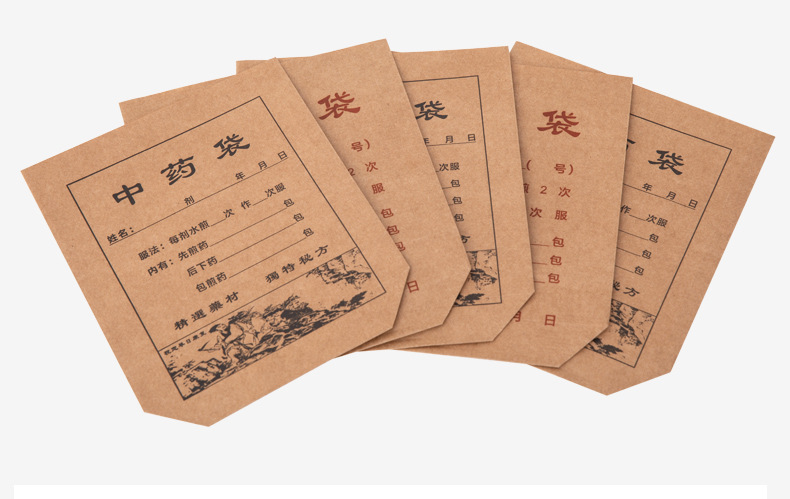 中药袋
年 月 日
姓名： 剂
服法：每剂水煎 次 作 次服
内有：先煎药 包
后下药 包
包煎药 包
精選藥材 獨特秘方
袋
号）
2 次
服
包
包
包
日
袋
年 月 日
次服
包
包
包
方
袋
（ 号）
煎 2 次
次 服
包
包
包
月 日
药袋
年 月 日
作 次服
包
包
包
秘方